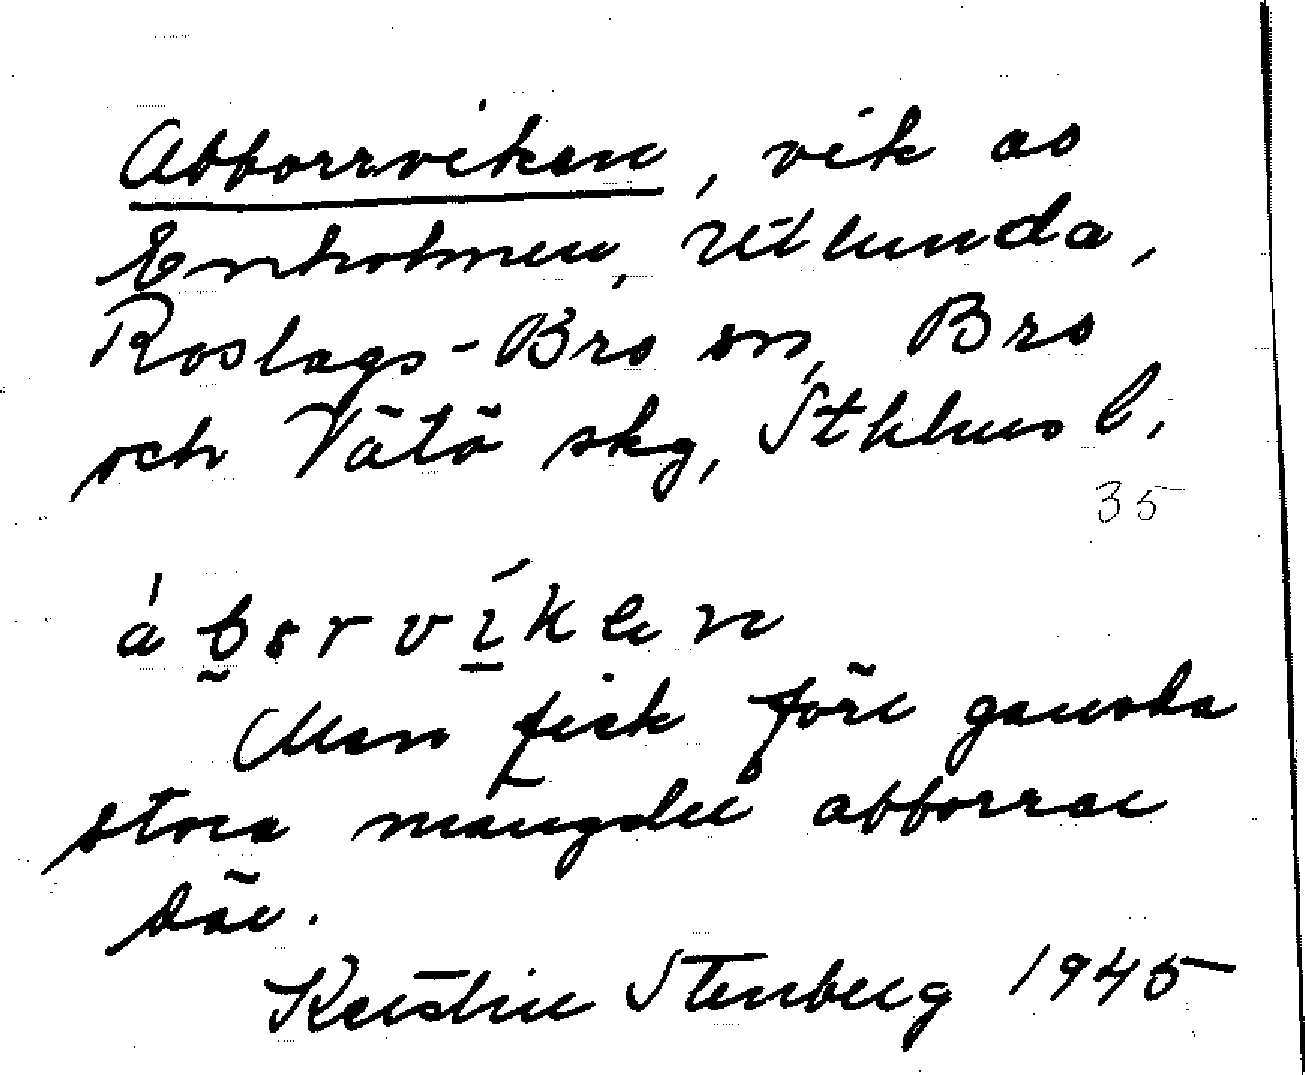 Abborrviken, vik ao
Enholmen, Utlunda,
Roslags-Bro sn, Bro
och Vätö skg, Sthlms l.
35
áborvíken
Man fick förr ganska
stora mängder abborrar
där.
Kerstin Stenberg 1945